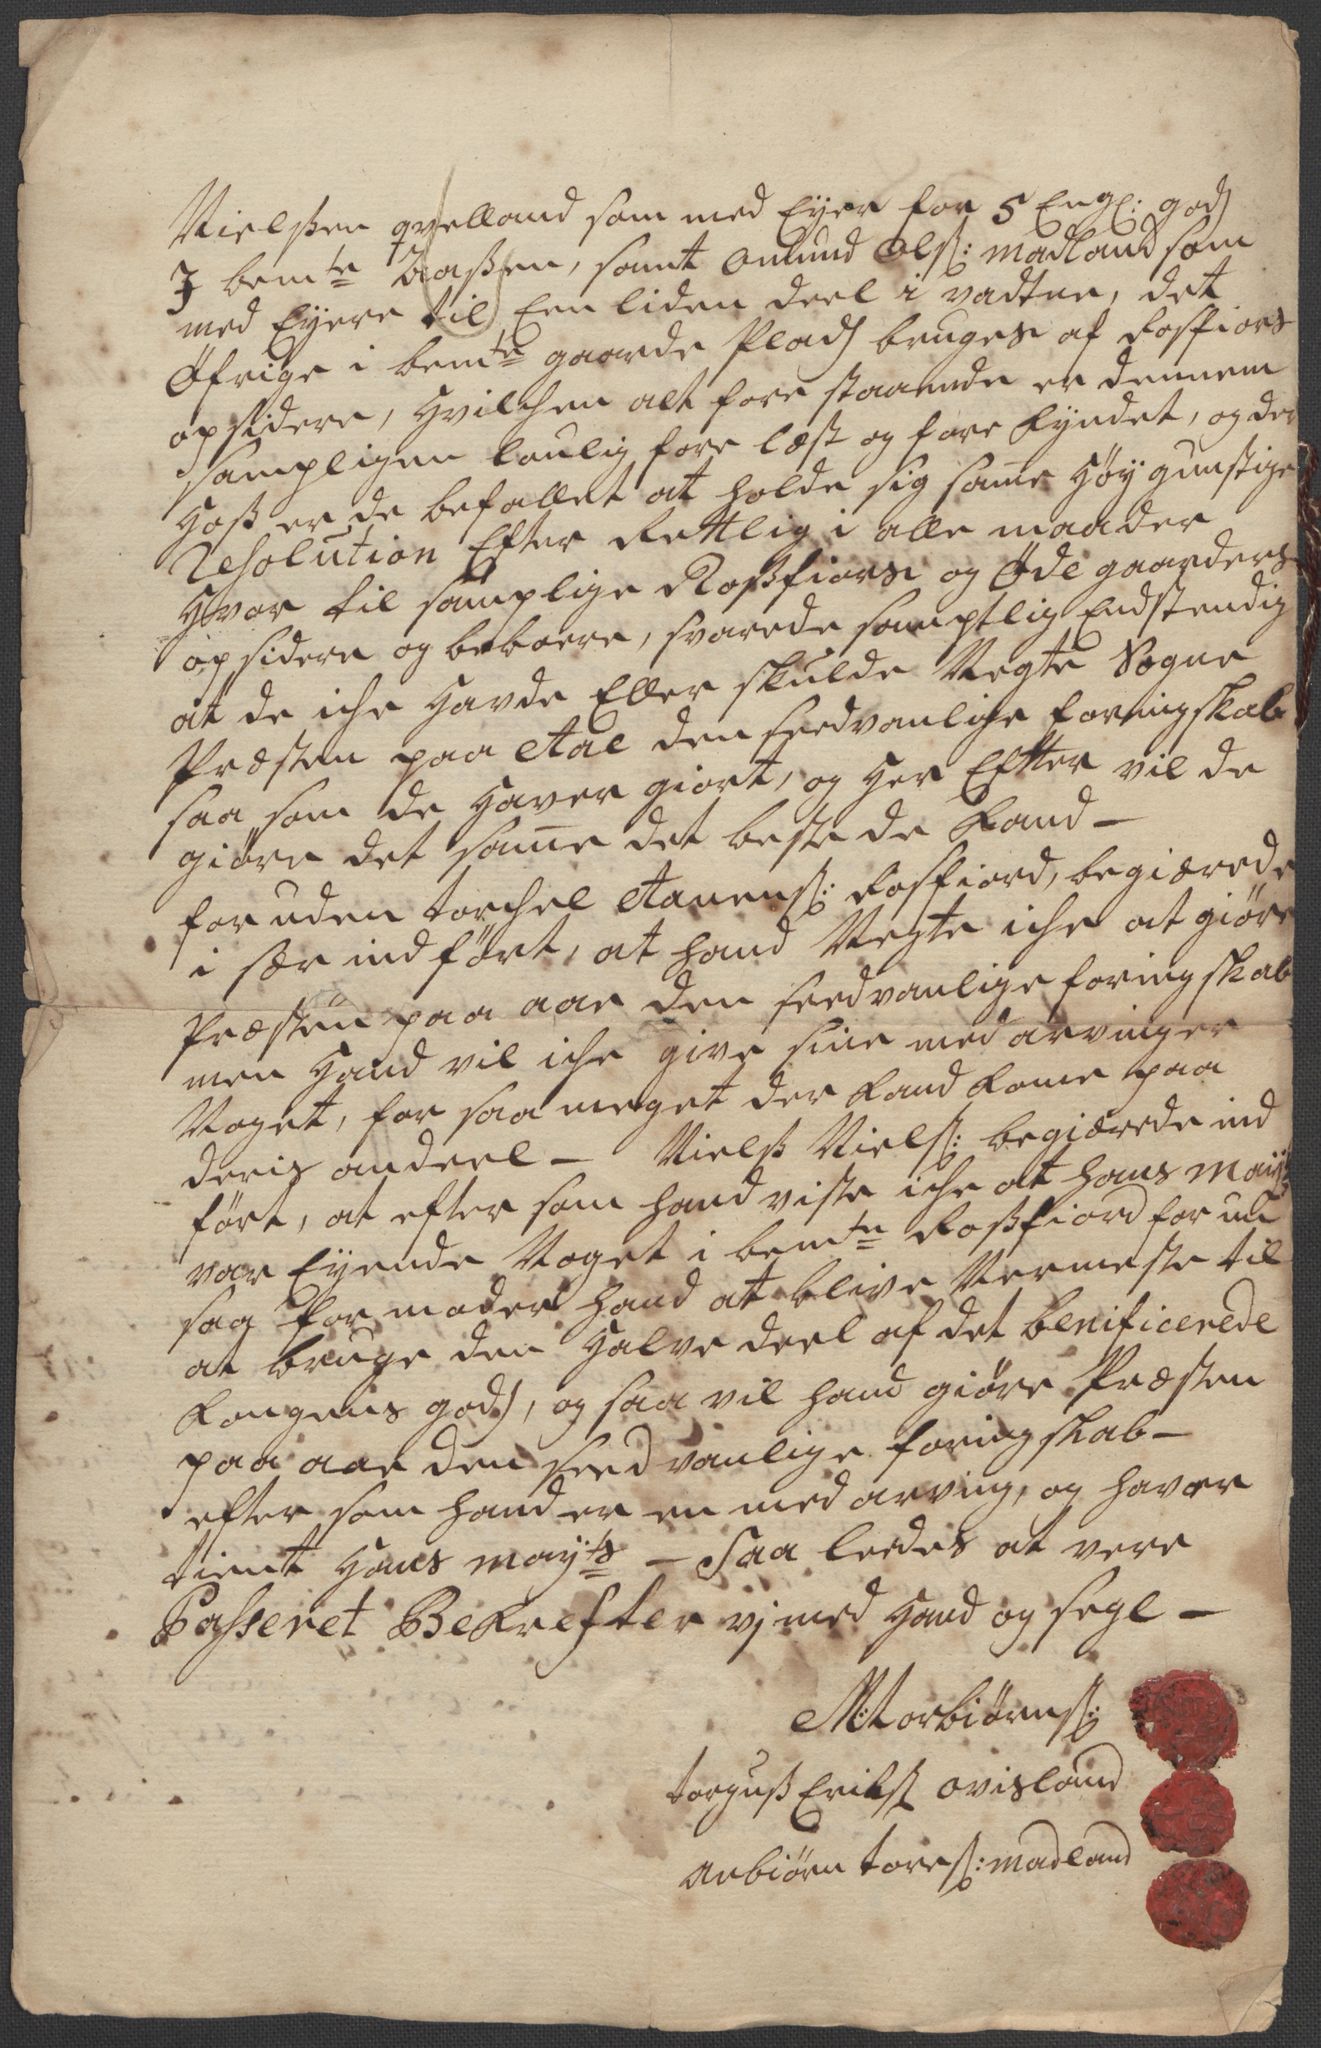 Nielßen qvelland som med Eyer for 5 Engl: godz
I bemte Aaßen, samt Omund Olß: Madland som
med Eyere til Een liden deel i vadtne, det
Øfrige i bemte gaarde Pladz bruges af Rosfiors
opsidere, hvilchen alt forestaaende er dennem
samptligen loulig fore læst og fore kyndet, og der
hoß er de befallet at holde sig same høygunstige
Resolution Efter Rettlig i alle maader
hvor til samptlige Roßfiors og Øde gaarders
opsidere og beboere, svarede samptlig Endstendig
at de iche hafde Eller skulde Negte Sogne
Præsten paa Aae den seedvanlige foringskab
saa som de hafver giort, og her Efter vil de
giøre det same det beste de kand -
foruden Torchel Aanenß: Rosfiord, begiærede
i sær indført, at hand Negte iche at giøre
Præsten paa aae den seedvanlige foringskab
men hand vil iche give sine med arvinger
Noget, for saa meget der kand kome paa
deris andeel - Nielß Nielß: begiærede ind
ført, at efter som hand viste iche at hans Mayts
var Eyende Noget i bemte Roßfiord for un
sag formoder hand at blive Nermeste til
at bruge den halve deel af det benificerede
kongens godz, og saa vil hand giøre Præsten
paa aae den seedvanlige foringskab -
efter som hand er en med arving, og haver
tient hans Mayts - Saa leedes at vere
Passeret Bekrefter vj med hand og segl -
M: torbiørnß:
torguß Erikß ovisland
Anbiørn toreß: madland